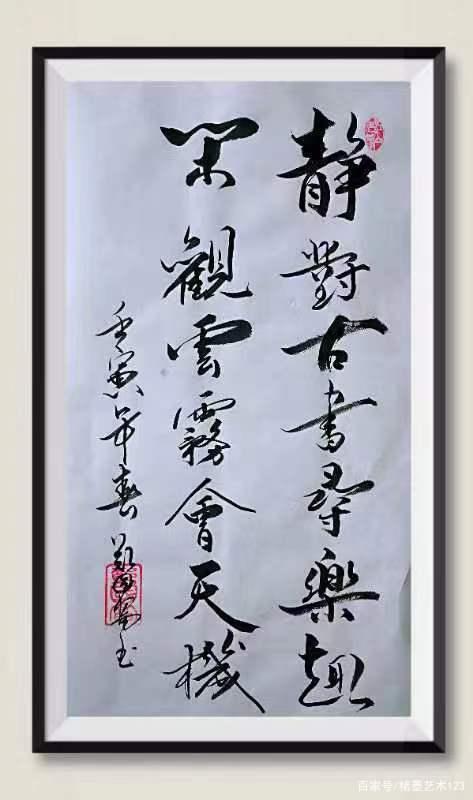 靜對古書尋樂趣
閑觀雲霧會天機
壬寅年春
百家号/楮墨艺术123